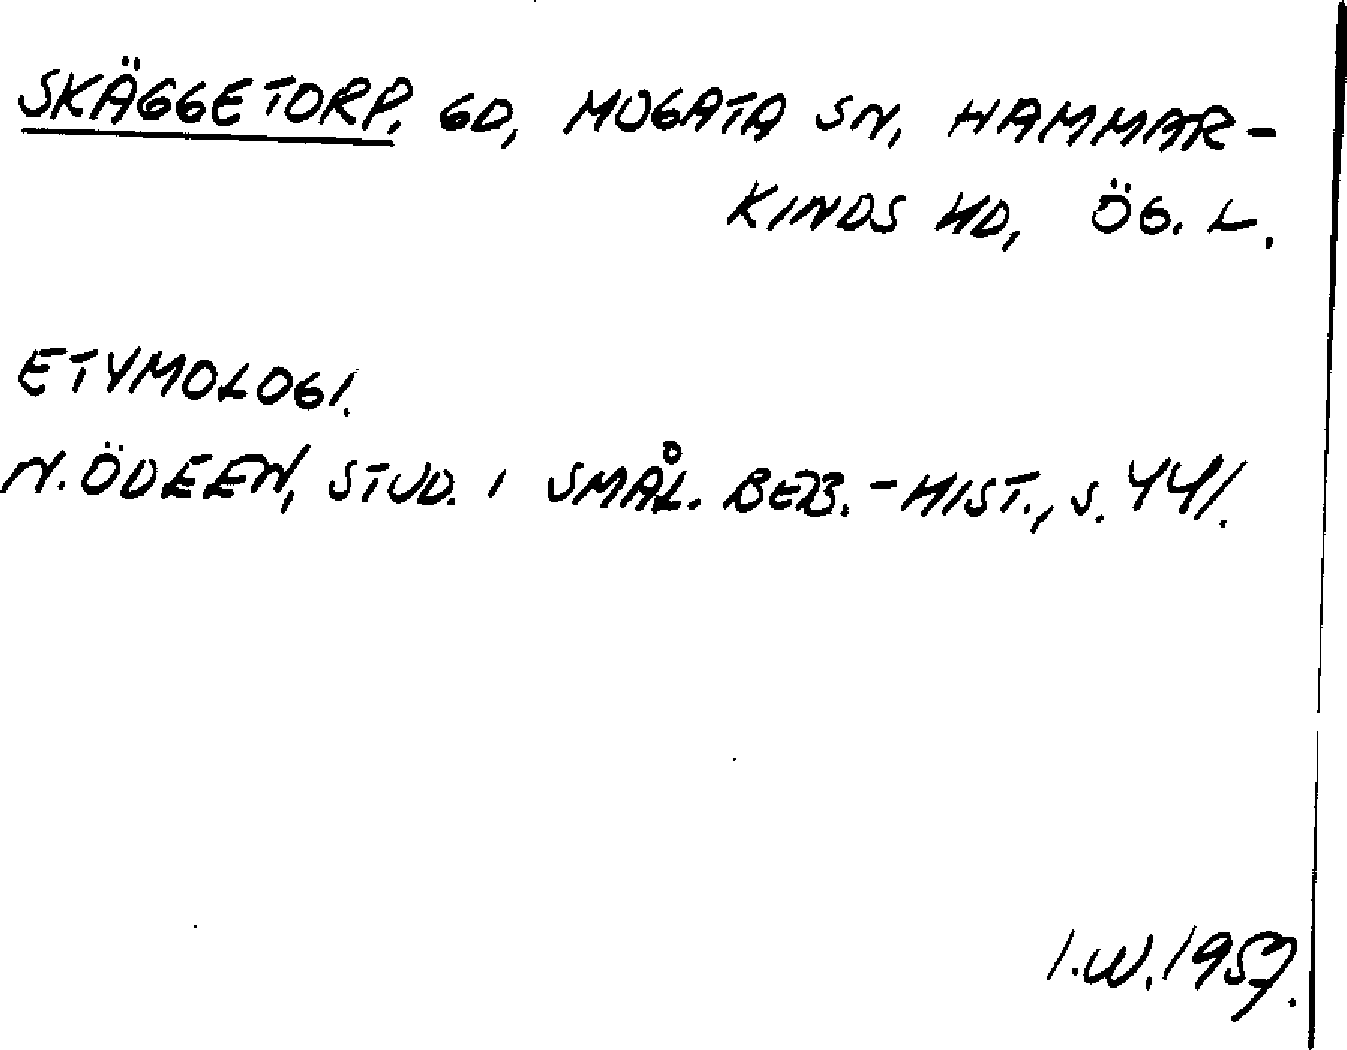 SKÄGGETORP, GD, MOGATA SN, HAMMAR-
KINDS HD, ÖG. L.
ETYMOLOGI.
N. ÖDEEN, STUD. I SMÅL. BEB.-HIST., S. 441.
I.W. 1957.